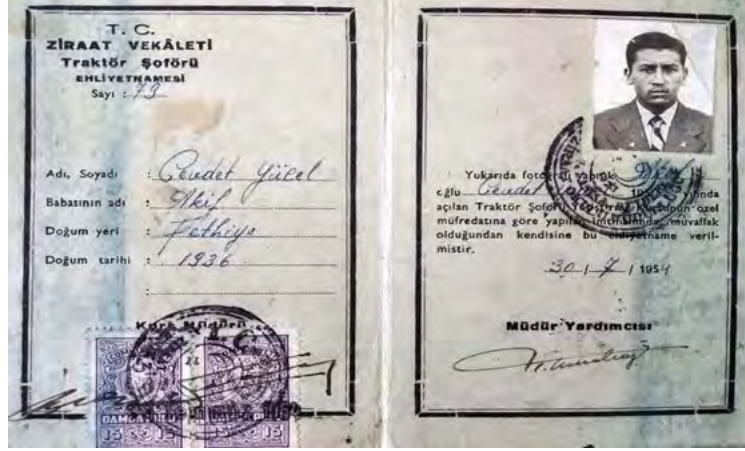 T. C.
ZİRAAT VEKÂLETİ
Traktör Şoförü
EHLİYETNAMESİ
Sayı : 73
Adı, Soyadı : Cevdet Yücel
Babasının adı : Akif
Doğum yeri : Fethiye
Doğum tarihi : 1936
:
Kurs Müdürü
T. C.
DAMGA
15 15 15 15
Yukarıda fotoğrafı yapışık Akif
oğlu Cevdet 19 yılında
açılan Traktör Şoförü Yetiştirme kursunun özel
müfredatına göre yapılan imtihanında, muvaffak
olduğundan kendisine bu ehliyetname veril-
mistir.
30 / 7 / 1954
Müdür Yardımcısı